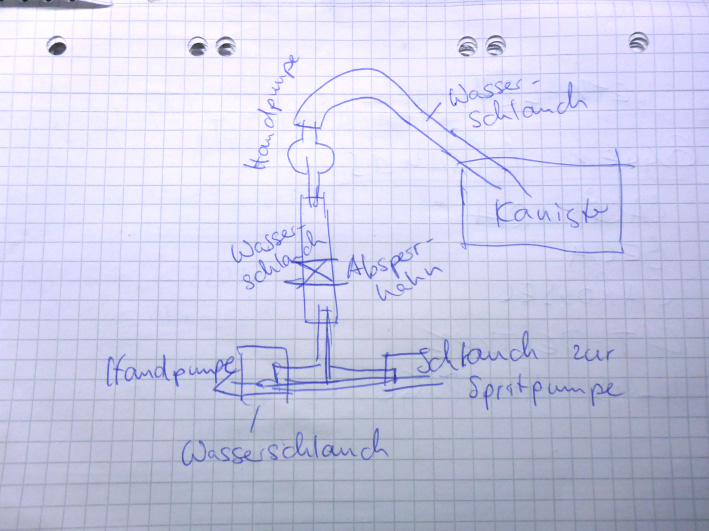 Handpumpe
Wasser-
schlauch
Kanister
Wasser-
schlauch
Absperr-
hahn
Handpumpe
Schlauch zur
Spritpumpe
Wasserschlauch